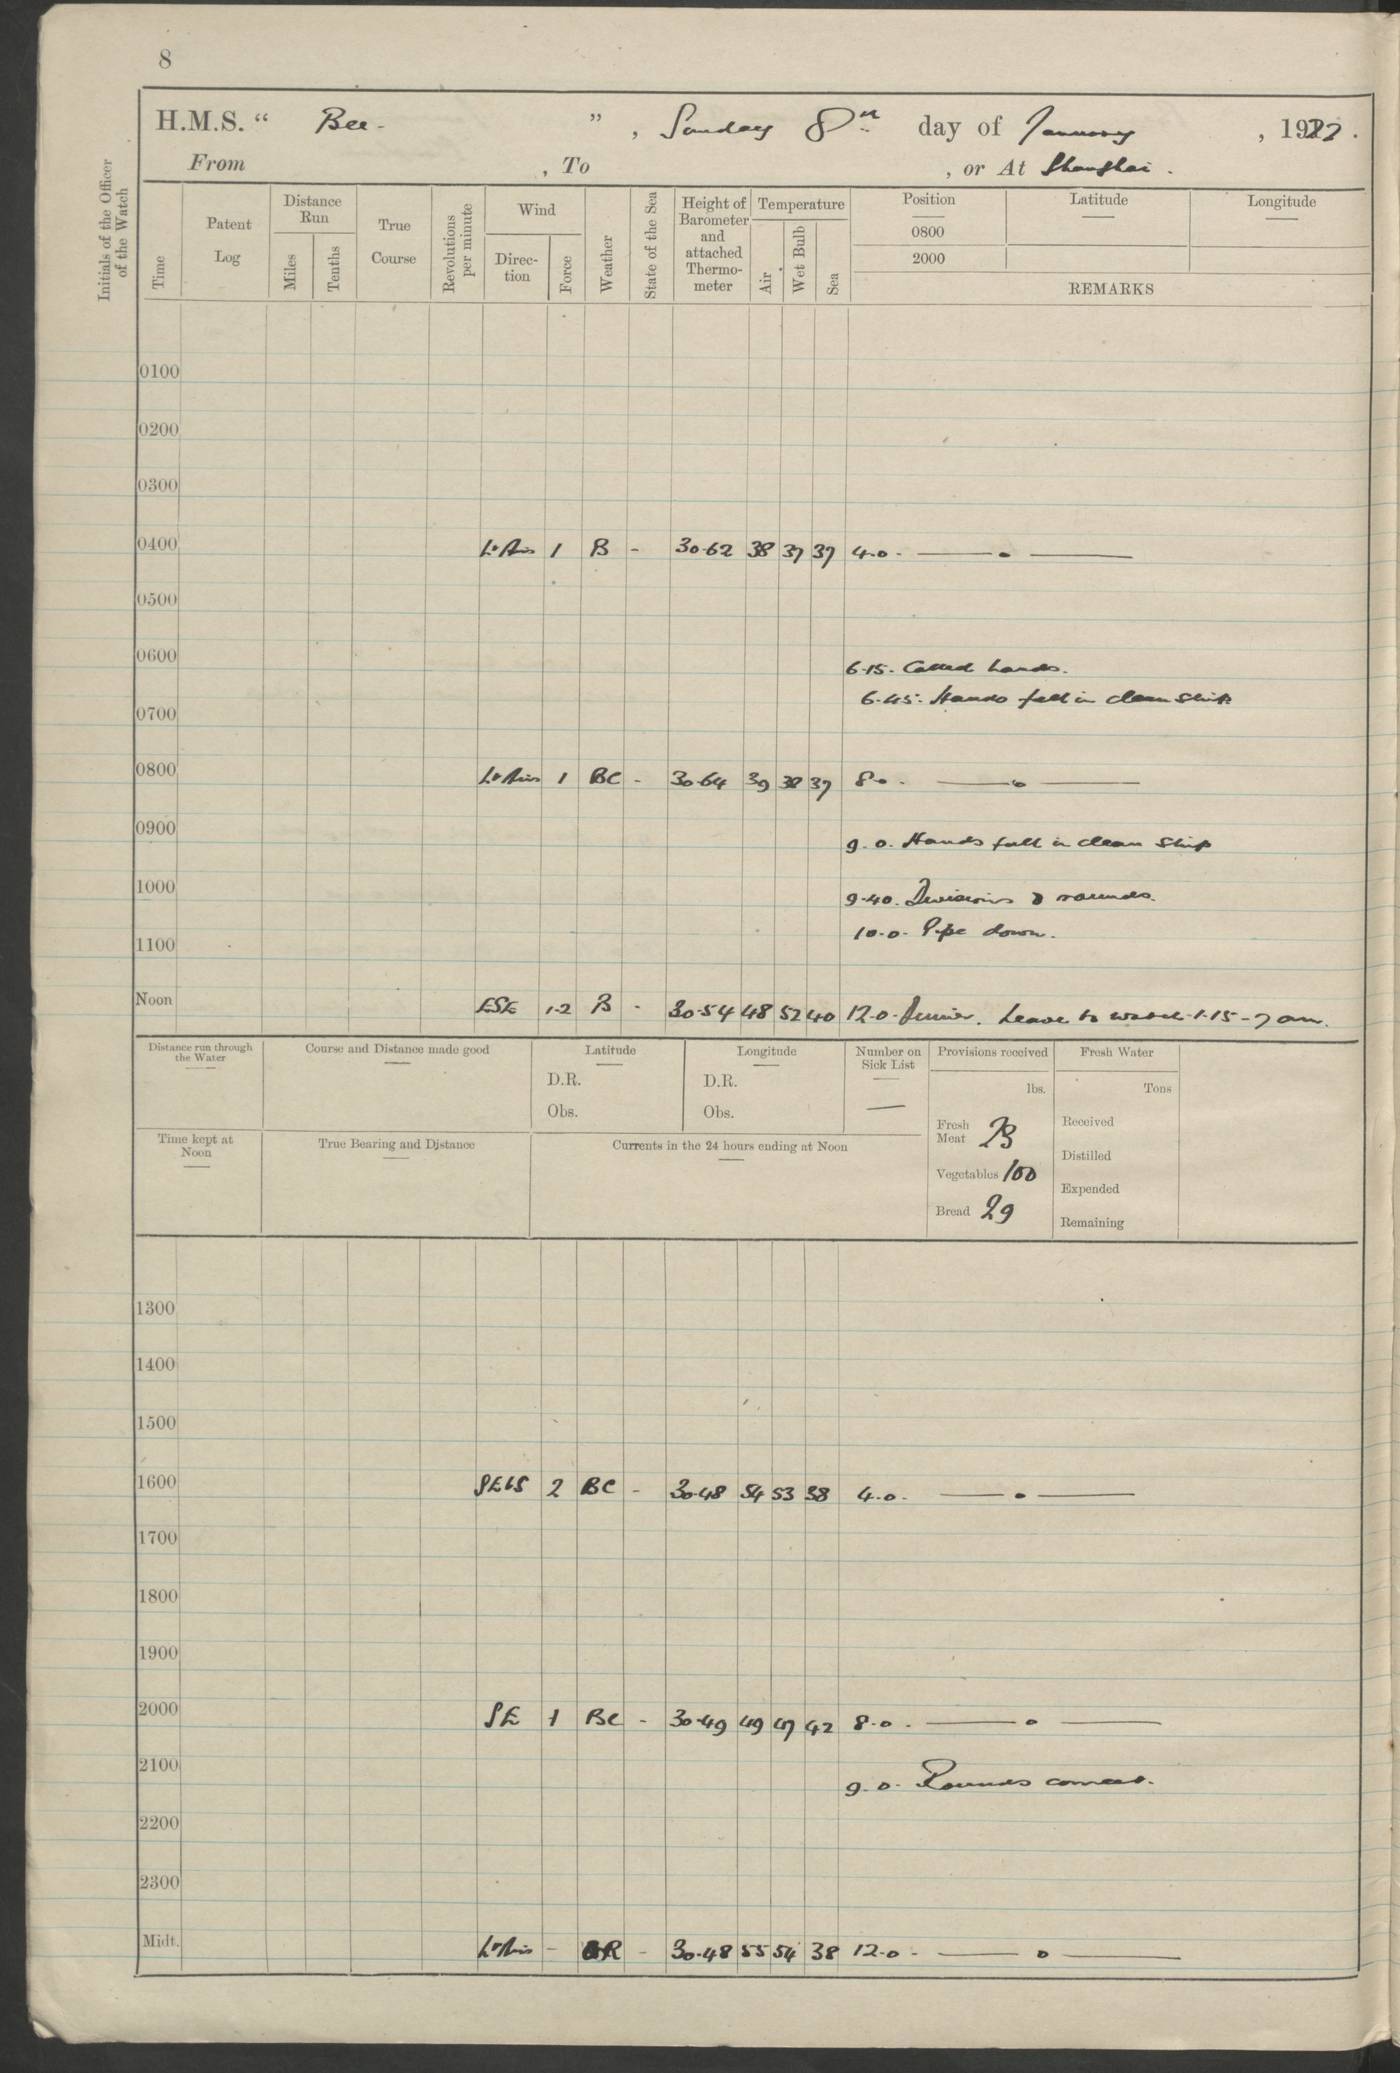 8
H.M.S. “ Bee. ” , Sunday 8th day of January , 1922 .
From , To , or At Shanghai .
Initials of the Officer of the Watch
Time
Patent Log
Distance Run
Miles
Tenths
True Course
Revolutions per minute
Wind
Direction
Force
Weather
State of the Sea
Height of Barometer and attached Thermometer
Temperature
Air
Wet Bulb
Sea
Position
0800
2000
Latitude
Longitude
REMARKS
0100
0200
0300
0400 Lt Airs 1 B - 30.62 38 37 37 4.0. — . —
0500
0600
6.15. Called hands.
6.45. Hands fall in clean ship
0700
0800 Lt Airs 1 BC - 30.64 39 38 37 8.0. — . —
0900
9.0. Hands fall in clean ship
1000
9.40. Divisions & rounds.
10.0. Pipe down.
1100
Noon ESE 1-2 B - 30.54 48 52 40 12.0. Dinner. Leave to watch 1.15 - 7 am.
Distance run through the Water
Course and Distance made good
Latitude
D.R.
Obs.
Longitude
D.R.
Obs.
Number on Sick List
—
Provisions received
lbs.
Fresh Meat 23
Vegetables 100
Bread 29
Fresh Water
Tons
Received
Distilled
Expended
Remaining
Time kept at Noon
True Bearing and Distance
Currents in the 24 hours ending at Noon
1300
1400
1500
1600 SEbS 2 BC - 30.48 54 53 38 4.0. — . —
1700
1800
1900
2000 SE 1 BC - 30.49 49 47 42 8.0. — . —
2100
9.0. Rounds correct.
2200
2300
Midt. Lt Airs - R - 30.48 55 54 38 12.0. — o —